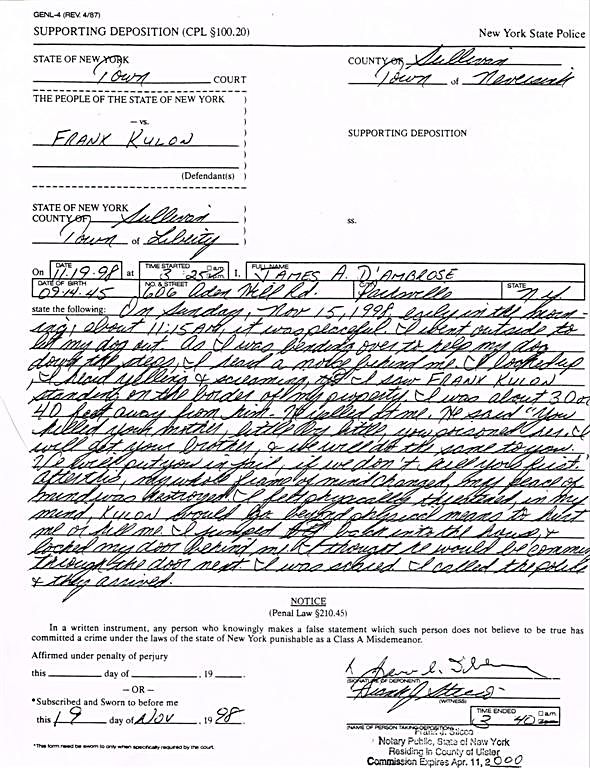 GENL-4 (REV. 4/87)
SUPPORTING DEPOSITION (CPL §100.20) New York State Police
STATE OF NEW YORK COUNTY OF Sullivan
Town COURT Town of Neversink
THE PEOPLE OF THE STATE OF NEW YORK
— vs.
FRANK KULON
SUPPORTING DEPOSITION
(Defendant(s)
STATE OF NEW YORK
COUNTY OF Sullivan ss.
Town of Liberty
DATE TIME STARTED □ a.m. FULL NAME
On 11-19-98 at 3 25 p.m. I, JAMES A. D'AMBROSE
DATE OF BIRTH NO. & STREET STATE
09-14-45 606 Aden Hill Rd. Parksville N.Y.
state the following: On Sunday, Nov 15, 1998, early in the morn-
ing, about 11:15 AM, it was peaceful. I went outside to
let my dog out. As I was bending over to help my dog
down the steps, I heard a noise behind me. I looked up
, I heard yelling & screaming, I saw FRANK KULON
standing on the border of my property. I was about 30 or
40 feet away from him. He yelled at me. He said "You
killed your mother, little by little you poisoned her. I
will get your brother, & we will do the same to you.
We will put you in jail, if we don't kill you first."
After this, my whole frame of mind changed, my peace of
mind was destroyed. I felt physically threatened in my
mind, KULON would go beyond physical means to hurt
me or kill me. I jumped back into the house, &
locked my door behind me. I thought he would be coming
through the door next. I was scared. I called the police
& they arrived.
NOTICE
(Penal Law §210.45)
In a written instrument, any person who knowingly makes a false statement which such person does not believe to be true has
committed a crime under the laws of the state of New York punishable as a Class A Misdemeanor.
Affirmed under penalty of perjury
this ______ day of ______, 19 ____
— OR — (SIGNATURE OF DEPONENT)
*Subscribed and Sworn to before me (WITNESS)
this 19 day of Nov, 1998 TIME ENDED □ a.m.
3 40 p.m.
(NAME OF PERSON TAKING DEPOSITION)
Notary Public, State of New York
*This form need be sworn to only when specifically required by the court. Residing in County of Ulster
Commission Expires Apr. 11, 2000